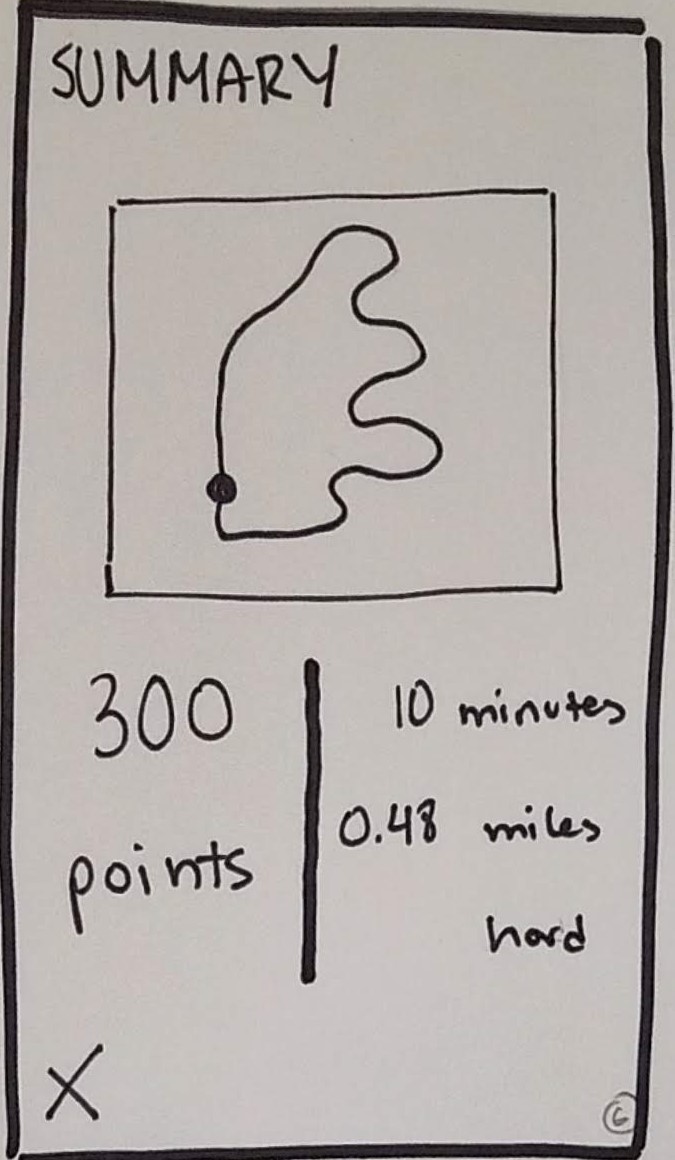 SUMMARY
300
points
10 minutes
0.48 miles
hard
X
6